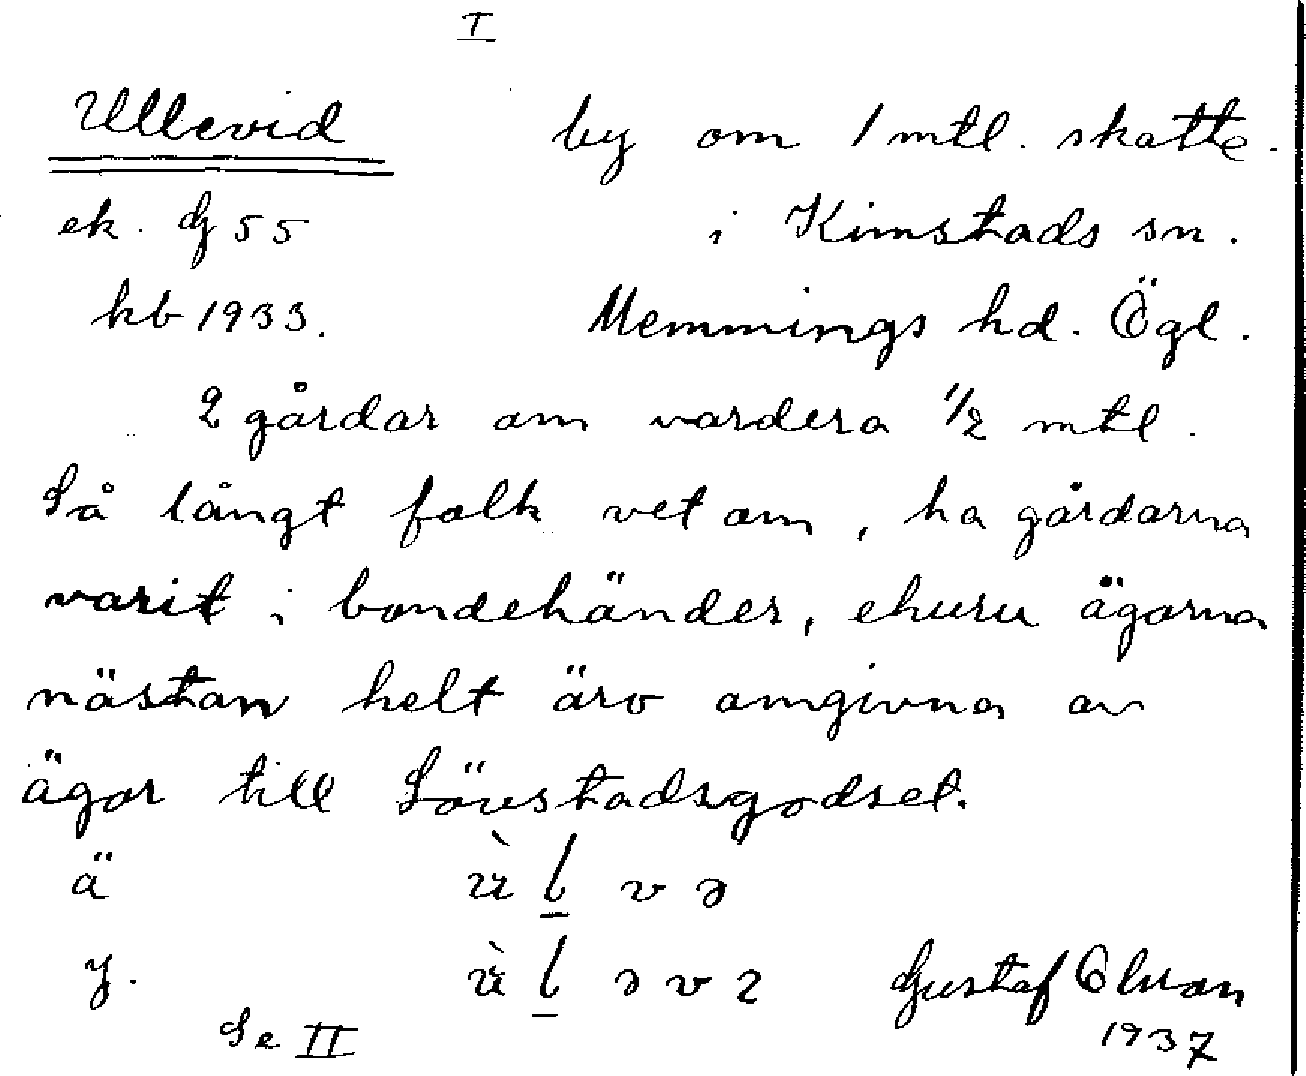 I
Ullevid by om 1 mtl. skatte.
ek. G 55 i Kimstads sn.
kb 1933. Memmings hd. Ögl.
2 gårdar om vardera 1/2 mtl.
Så långt folk vet om, ha gårdarna
varit i bondehänder, ehuru ägorna
nästan helt äro omgivna av
ägor till Lövstadsgodset.
ä
y. Gustaf Olsson
Se II 1937